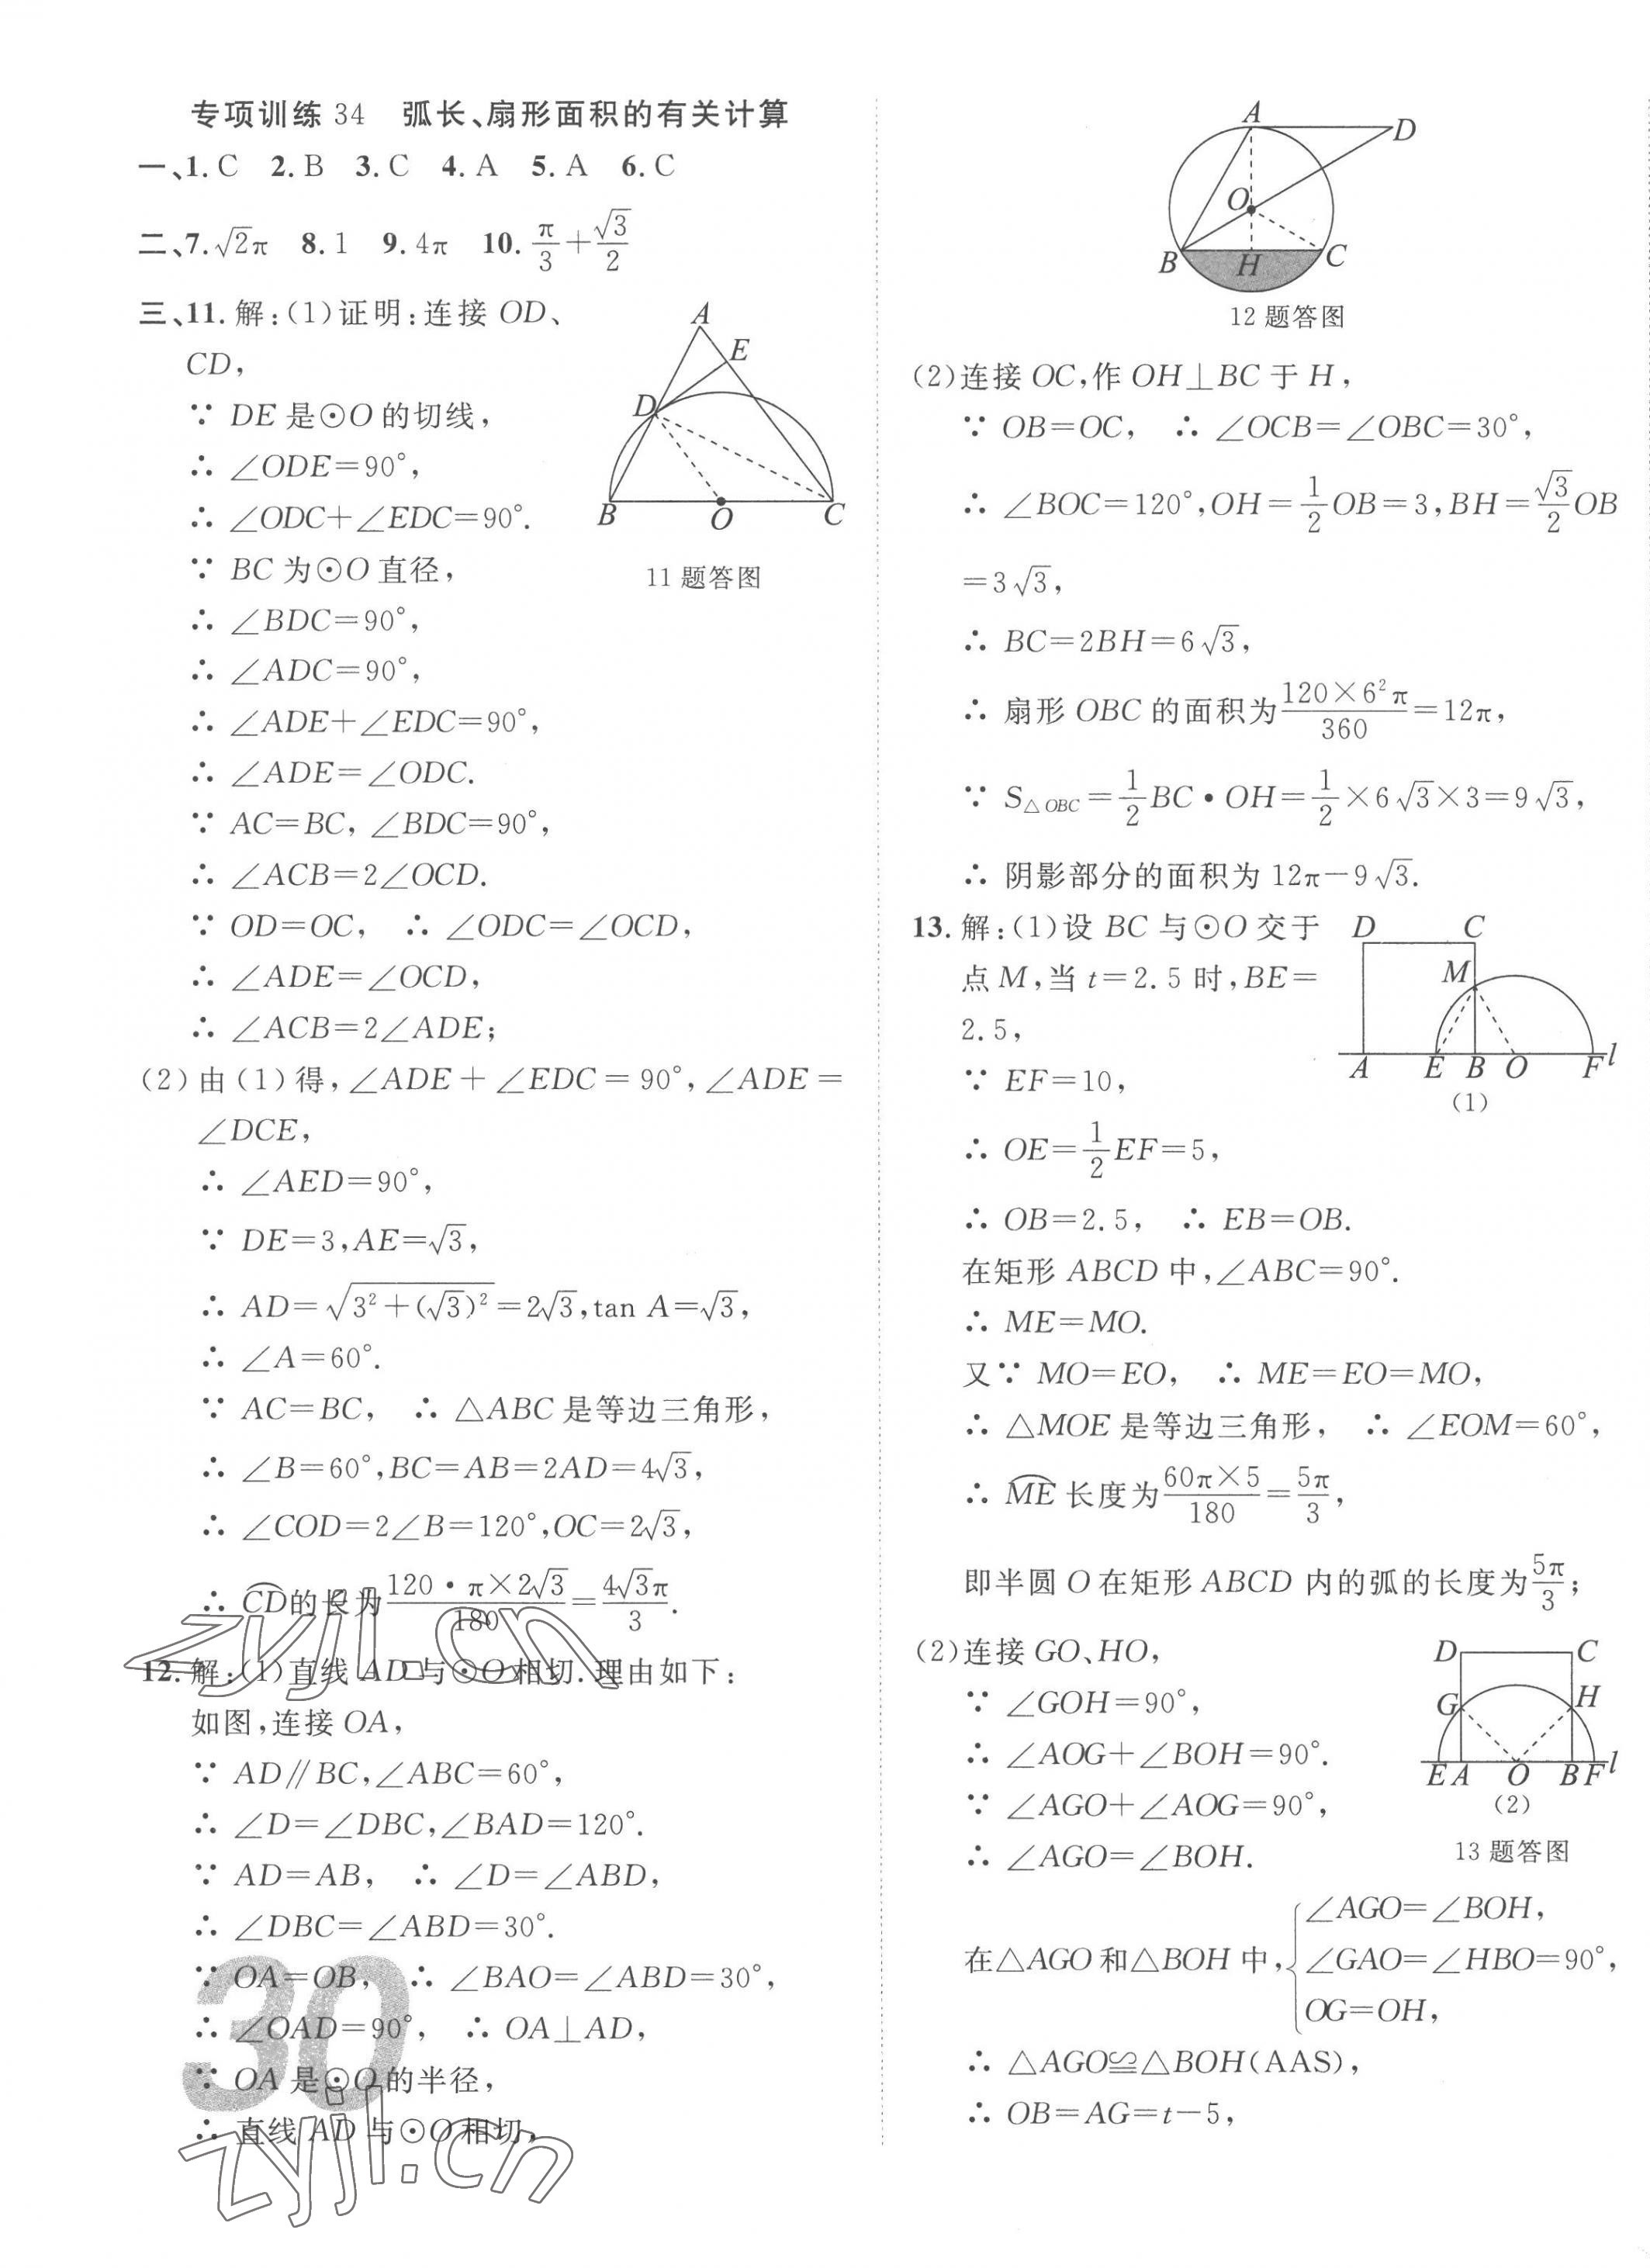 专项训练 34　弧长、扇形面积的有关计算
一、1. C　2. B　3. C　4. A　5. A　6. C
二、7. √2π　8. 1　9. 4π　10. π/3+√3/2
三、11. 解:(1)证明:连接 OD、
CD,
∵ DE 是⊙O 的切线,
∴ ∠ODE=90°,
∴ ∠ODC+∠EDC=90°.
∵ BC 为⊙O 直径,
∴ ∠BDC=90°,
∴ ∠ADC=90°,
∴ ∠ADE+∠EDC=90°,
∴ ∠ADE=∠ODC.
∵ AC=BC, ∠BDC=90°,
∴ ∠ACB=2∠OCD.
∵ OD=OC,　∴ ∠ODC=∠OCD,
∴ ∠ADE=∠OCD,
∴ ∠ACB=2∠ADE;
A
E
D
B
O
C
11 题答图
(2)由(1)得,∠ADE+∠EDC=90°,∠ADE=
∠DCE,
∴ ∠AED=90°,
∵ DE=3,AE=√3,
∴ AD=√(3²+(√3)²)=2√3,tan A=√3,
∴ ∠A=60°.
∵ AC=BC,　∴ △ABC 是等边三角形,
∴ ∠B=60°,BC=AB=2AD=4√3,
∴ ∠COD=2∠B=120°,OC=2√3,
∴ ⌒CD的长为 120·π×2√3/180=4√3π/3.
12. 解:(1)直线 AD 与⊙O 相切.理由如下:
如图,连接 OA,
∵ AD∥BC,∠ABC=60°,
∴ ∠D=∠DBC,∠BAD=120°.
∵ AD=AB,　∴ ∠D=∠ABD,
∴ ∠DBC=∠ABD=30°.
∵ OA=OB,　∴ ∠BAO=∠ABD=30°,
∴ ∠OAD=90°,　∴ OA⊥AD,
∵ OA 是⊙O 的半径,
∴ 直线 AD 与⊙O 相切,
30
zyjl.cn
zyjl.cn
A
D
O
B
H
C
12 题答图
(2)连接 OC,作 OH⊥BC 于 H,
∵ OB=OC,　∴ ∠OCB=∠OBC=30°,
∴ ∠BOC=120°,OH=1/2OB=3,BH=√3/2OB
=3√3,
∴ BC=2BH=6√3,
∴ 扇形 OBC 的面积为 120×6²π/360=12π,
∵ S△OBC=1/2BC·OH=1/2×6√3×3=9√3,
∴ 阴影部分的面积为 12π-9√3.
13. 解:(1)设 BC 与⊙O 交于
点 M,当 t=2.5 时,BE=
2.5,
∵ EF=10,
∴ OE=1/2EF=5,
∴ OB=2.5,　∴ EB=OB.
在矩形 ABCD 中,∠ABC=90°.
∴ ME=MO.
又∵ MO=EO,　∴ ME=EO=MO,
∴ △MOE 是等边三角形,　∴ ∠EOM=60°,
∴ ⌒ME 长度为 60π×5/180=5π/3,
即半圆 O 在矩形 ABCD 内的弧的长度为 5π/3;
D
C
M
A
E
B
O
F
l
(1)
(2)连接 GO、HO,
∵ ∠GOH=90°,
∴ ∠AOG+∠BOH=90°.
∵ ∠AGO+∠AOG=90°,
∴ ∠AGO=∠BOH.
D
C
G
H
E
A
O
B
F
l
(2)
13 题答图
在△AGO 和△BOH 中,{∠AGO=∠BOH,
∠GAO=∠HBO=90°,
OG=OH,
∴ △AGO≌△BOH(AAS),
∴ OB=AG=t-5,